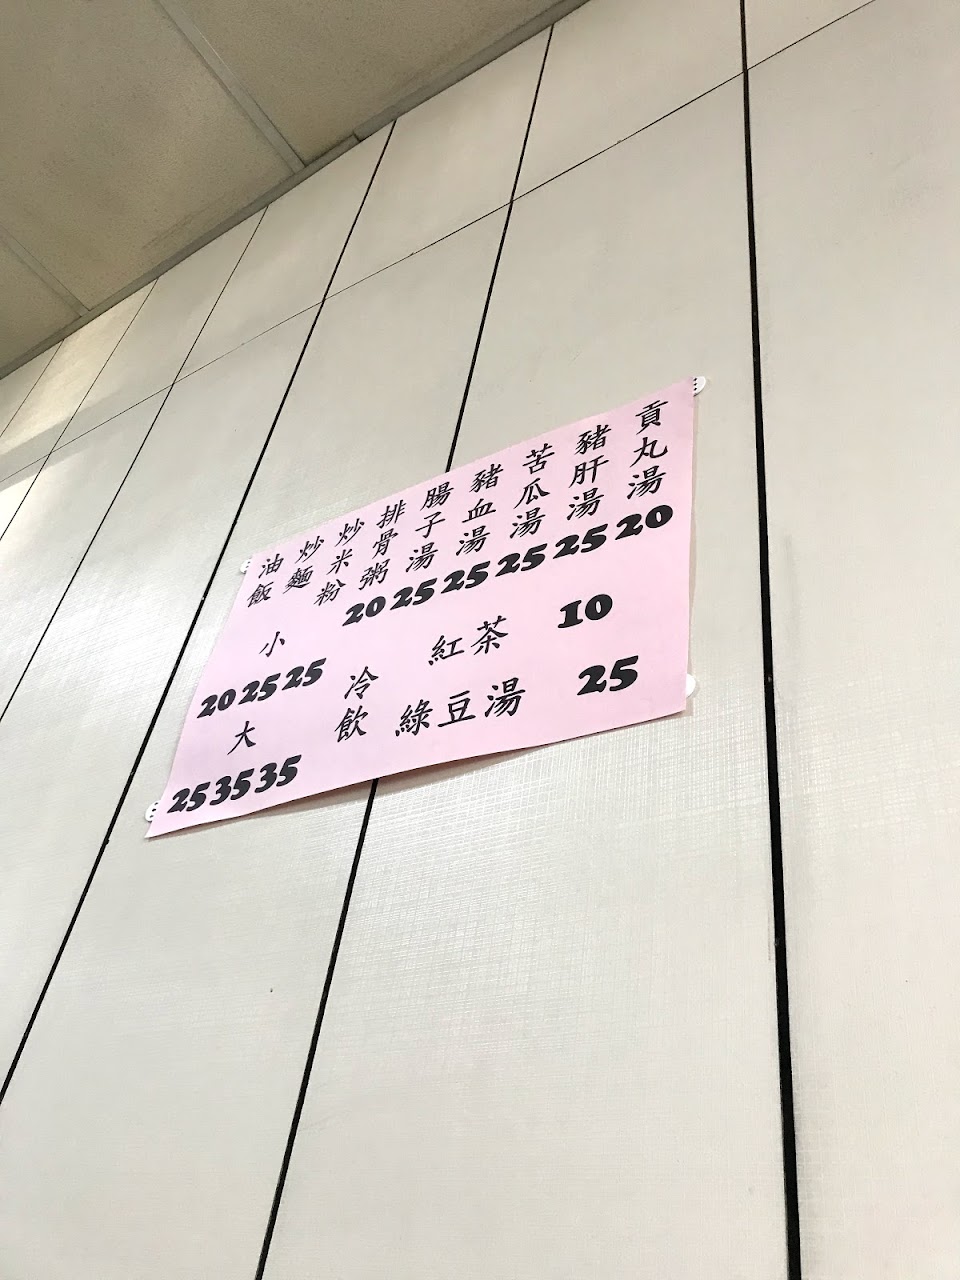 貢丸湯
20
豬肝湯
25
苦瓜湯
25
豬血湯
25
腸子湯
25
排骨粥
20
炒米粉
炒麵
油飯
小
20 25 25
大
25 35 35
冷飲
紅茶 10
綠豆湯 25